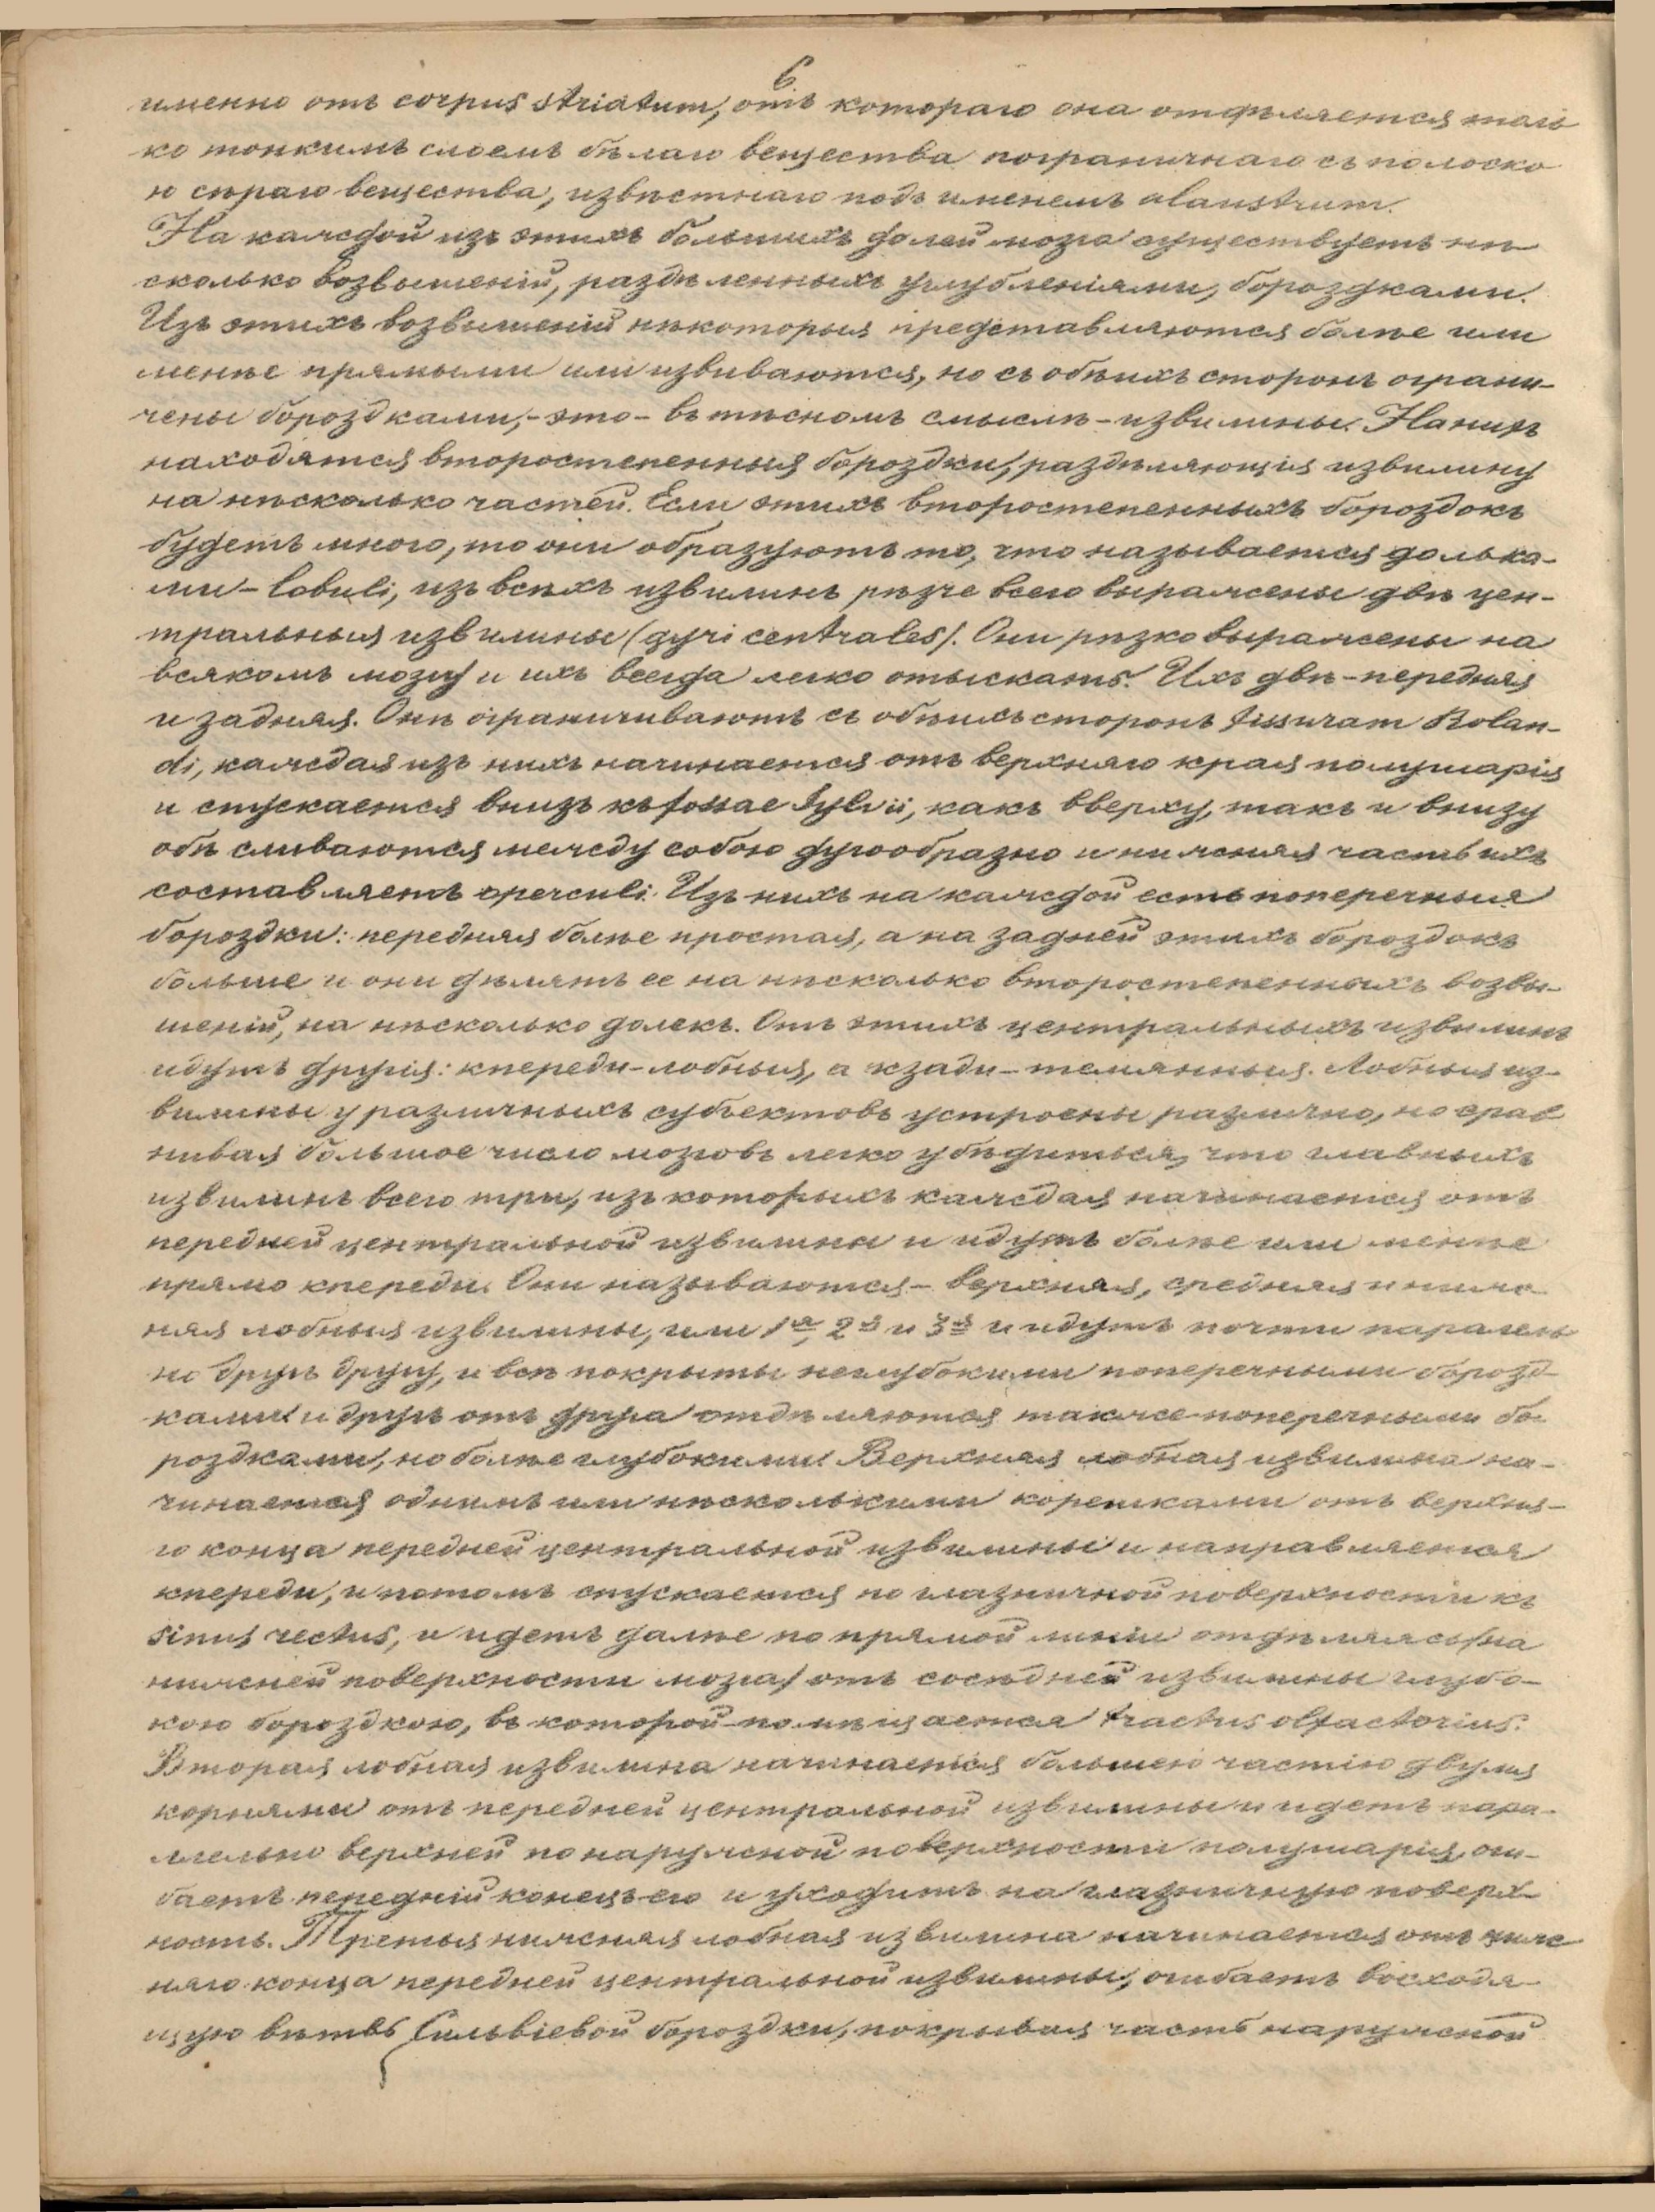 6
именно отъ corpus striatum, отъ котораго она отдѣляется толь
ко тонкимъ слоемъ бѣлаго вещества пограничнаго съ полоско
ю сѣраго вещества, извѣстнаго подъ именемъ alaustrum.
На каждой изъ этихъ большихъ долей мозга существуетъ нѣ
сколько возвышеній, раздѣленныхъ углубленіями, бороздками.
Изъ этихъ возвышеній нѣкоторыя представляются болѣе или
менѣе прямыми или извиваются, но съ обѣихъ сторонъ ограни-
чены бороздками,- это - въ тѣсномъ смыслѣ - извилины. На нихъ
находятся второстепенныя бороздки, раздѣляющія извилину
на нѣсколько частей. Если этихъ второстепенныхъ бороздокъ
будетъ много, то они образуютъ то, что называется долька-
ми - lobuli, изъ всѣхъ извилинъ рѣзче всего выражены двѣ цен-
тральныя извилины (gyri centrales). Они рѣзко выражены на
всякомъ мозгу и ихъ всегда легко отыскать. Ихъ двѣ - передняя
и задняя. Онѣ ограничиваютъ съ обѣихъ сторонъ fissuram Rolan-
di, каждая изъ нихъ начинается отъ верхняго края полушарія
и спускается внизъ къ fossae Sylvii, какъ вверху, такъ и внизу
обѣ сливаются между собою дугообразно и нижняя часть ихъ
составляетъ operculi. Изъ нихъ на каждой есть поперечныя
бороздки: передняя болѣе простая, а на задней этихъ бороздокъ
больше и они дѣлятъ ее на нѣсколько второстепенныхъ возвы-
шеній, на нѣсколько долекъ. Отъ этихъ центральныхъ извилинъ
идутъ другія: кпереди - лобныя, а кзади - темянныя. Лобныя из-
вилины у различныхъ субъектовъ устроены различно, но срав
нивая большое число мозговъ легко убѣдиться, что главныхъ
извилинъ всего три, изъ которыхъ каждая начинается отъ
передней центральной извилины и идутъ болѣе или менѣе
прямо кпереди. Они называются - верхняя, средняя и ниж
няя лобныя извилины, или 1я, 2я и 3я и идутъ почти паралель
но другъ другу, и всѣ покрыты неглубокими поперечными борозд-
ками и другъ отъ друга отдѣляются также поперечными бо-
роздками, но болѣе глубокими. Верхняя лобная извилина на-
чинается однимъ или нѣсколькими корешками отъ верхня-
го конца передней центральной извилины и направляется
кпереди, и потомъ спускается по глазничной поверхности къ
sinus rectus, и идетъ далѣе по прямой линіи отдѣляясь (на
нижней поверхности мозга) отъ сосѣдней извилины глубо-
кою бороздкою, въ которой помѣщается tractus olfactorius.
Вторая лобная извилина начинается большею частію двумя
корнями отъ передней центральной извилины и идетъ пара-
ллельно верхней по наружной поверхности полушарія, оги-
баетъ передній конецъ его и уходитъ на глазничную поверх-
ность. Третья нижняя лобная извилина начинается отъ ниж
няго конца передней центральной извилины, огибаетъ восходя-
щую вѣтвь Сильвіевой бороздки, покрывая часть наружной